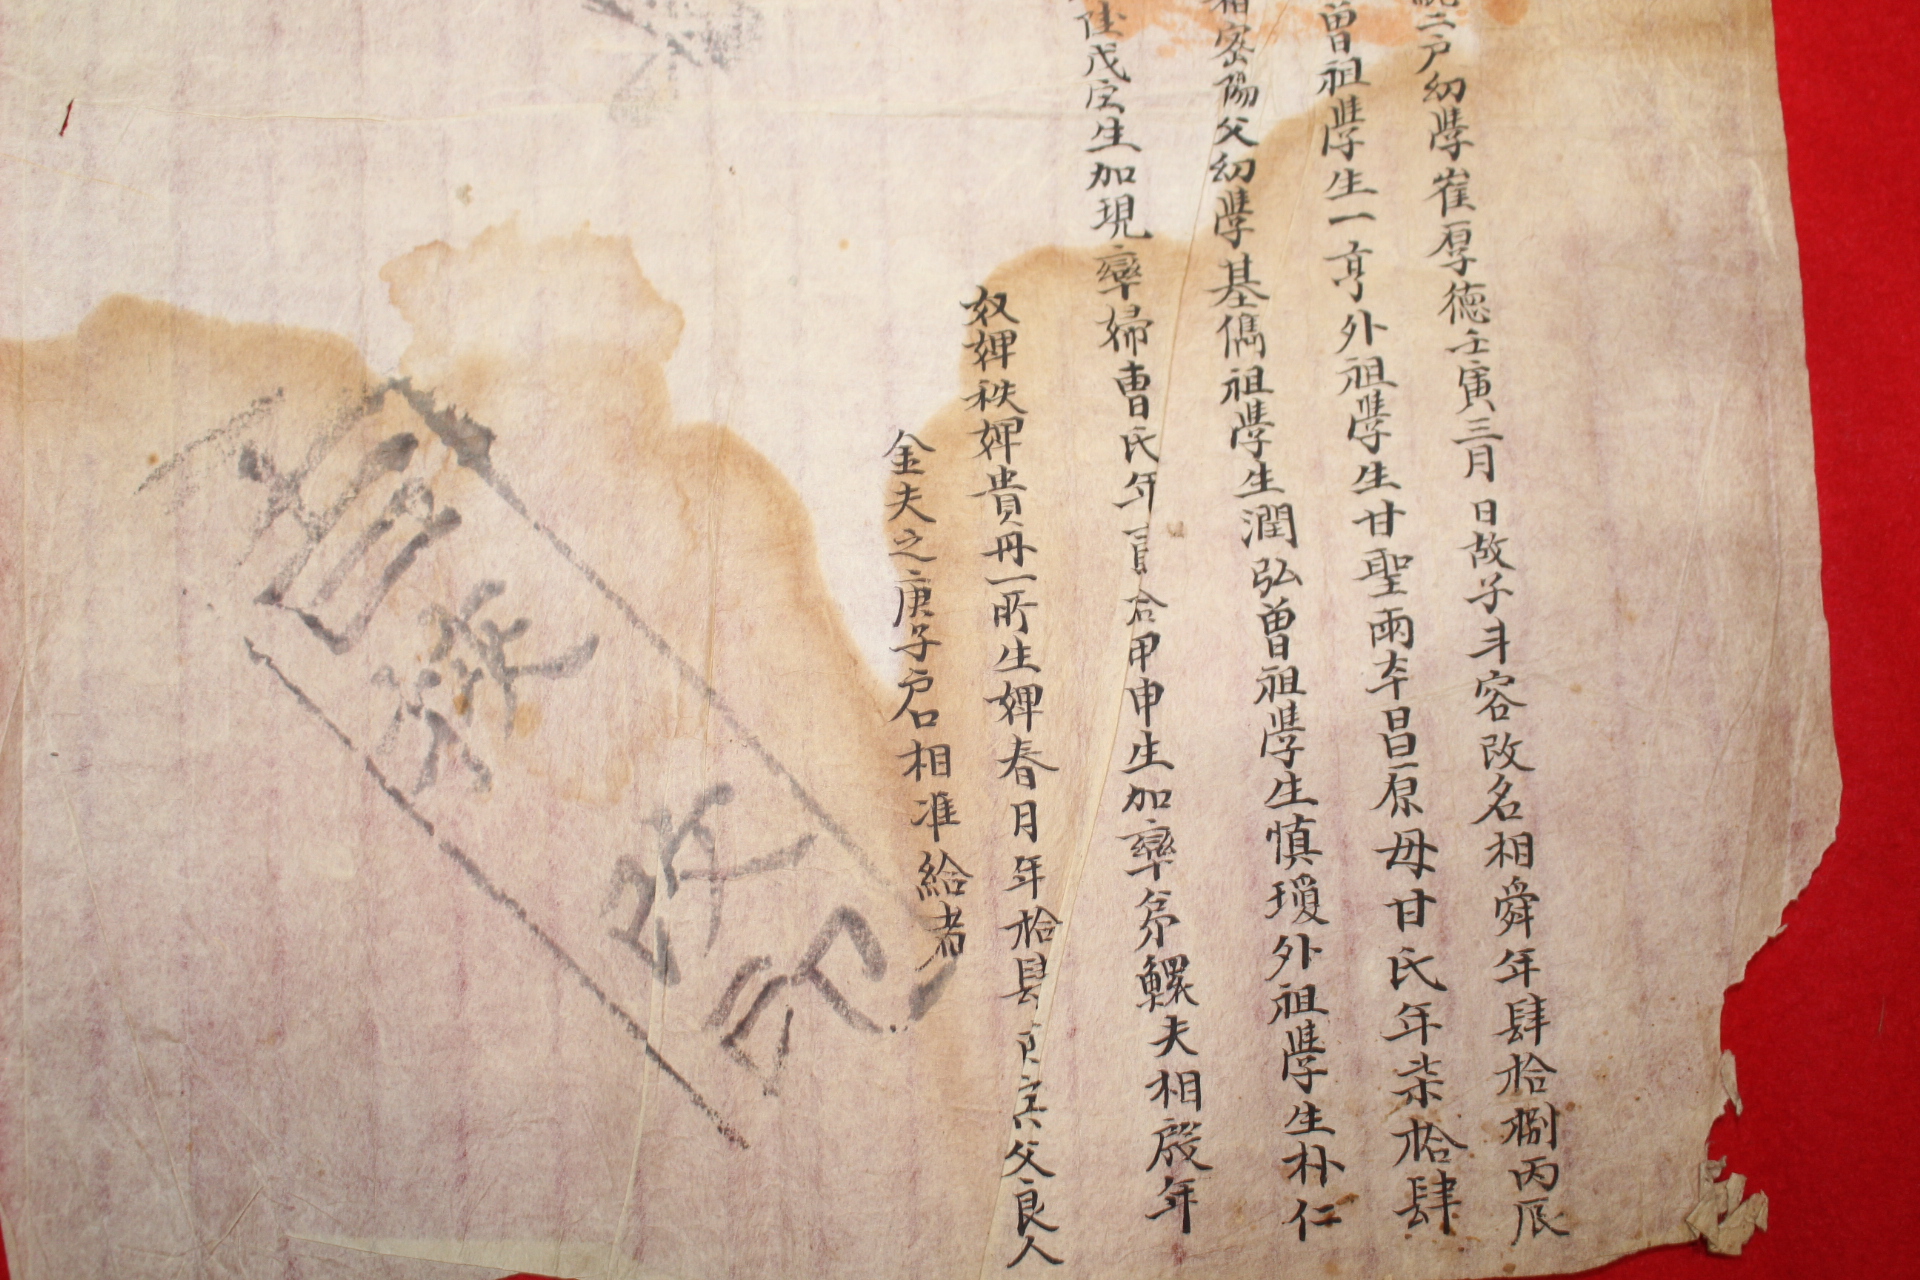 統二戶幼學崔厚德壬寅三月日故子斗容改名相舜年肆拾捌丙辰
曾祖學生一亨外祖學生甘聖雨本昌原母甘氏年柒拾肆
籍密陽父幼學基儁祖學生潤弘曾祖學生慎瑗外祖學生朴仁
陸戊寅生加現率婦曺氏年 拾甲申生加率 夫相殷年
奴婢秩婢貴丹一所生婢春月年拾 寅父良人
金夫之庚子戶口相准給者
改印